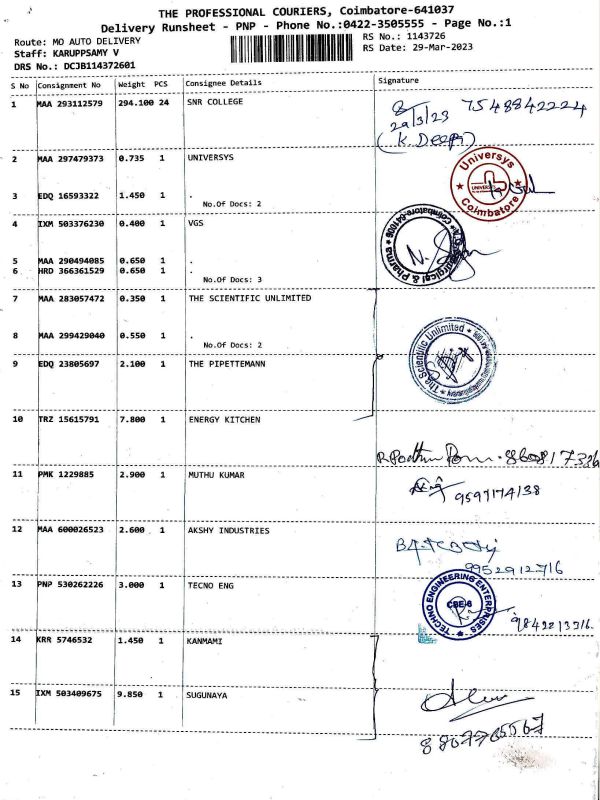 THE PROFESSIONAL COURIERS, Coimbatore-641037
Delivery Runsheet - PNP - Phone No.:0422-3505555 - Page No.:1
Route: MO AUTO DELIVERY
Staff: KARUPPSAMY V
DRS No.: DCJB114372601
RS No.: 1143726
RS Date: 29-Mar-2023
S No Consignment No Weight PCS Consignee Details Signature
1 MAA 293112579 294.100 24 SNR COLLEGE
7548842224
29/3/23
(K. Deepa)
2 MAA 297479373 0.735 1 UNIVERSYS
Universys
UNIVERSYS
Coimbatore
3 EDQ 16593322 1.450 1 .
No.Of Docs: 2
4 IXM 503376230 0.400 1 VGS
Surgical & Pharma
Coimbatore-641006
5 MAA 290494085 0.650 1 .
6 HRD 366361529 0.650 1 .
No.Of Docs: 3
7 MAA 283057472 0.350 1 THE SCIENTIFIC UNLIMITED
The Scientific Unlimited
8 MAA 299429040 0.550 1 .
No.Of Docs: 2
9 EDQ 23805697 2.100 1 THE PIPETTEMANN
10 TRZ 15615791 7.800 1 ENERGY KITCHEN
11 PMK 1229885 2.900 1 MUTHU KUMAR
9597174138
12 MAA 600026523 2.600 1 AKSHY INDUSTRIES
9952912716
13 PNP 530262226 3.000 1 TECNO ENG
TECHNO ENGINEERING ENTERPRISES
CBE-6
9842213916.
14 KRR 5746532 1.450 1 KANMAMI
15 IXM 503409675 9.850 1 SUGUNAYA